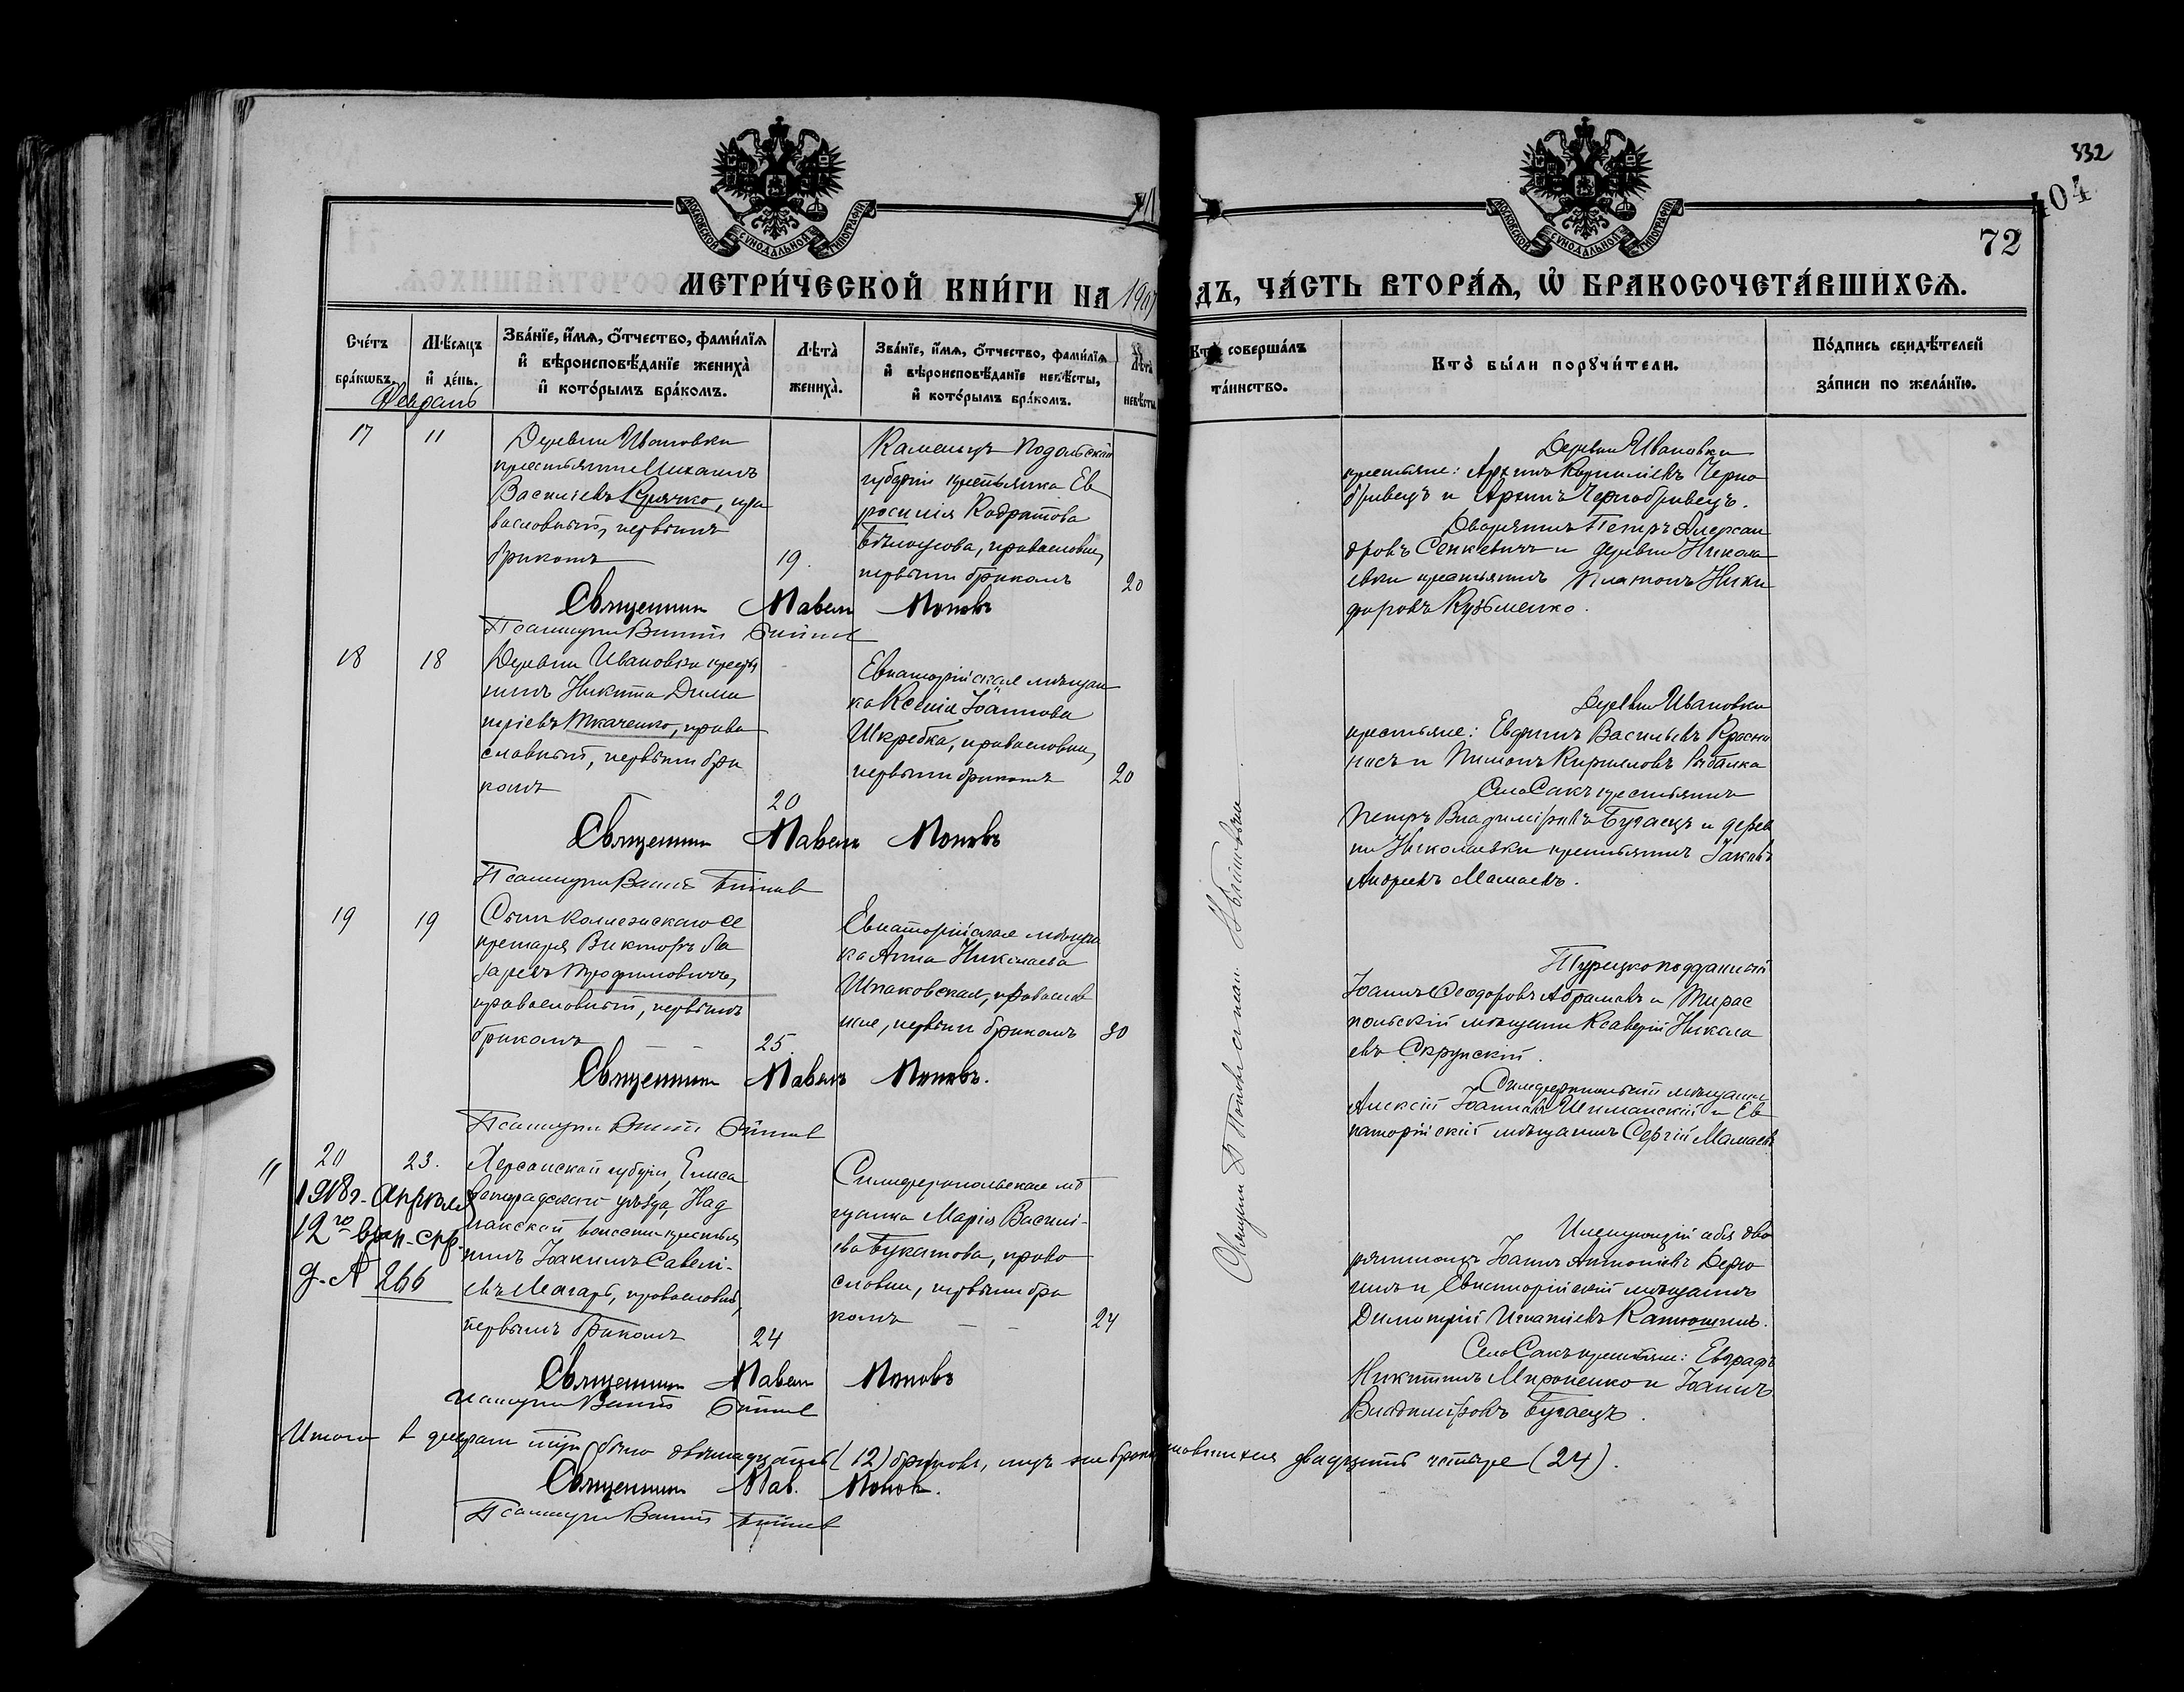 332
404
72
МОСКОВСКОЙ СѴНОДАЛЬНОЙ ТИПОГРАФІИ
МОСКОВСКОЙ СѴНОДАЛЬНОЙ ТИПОГРАФІИ
МЕТРИ́ЧЕСКОЙ КНИ́ГИ НА 1907
ДЪ, ЧА́СТЬ ВТОРА́Ѧ, Ѽ БРАКОСОЧЕТА́ВШИХСѦ.
Сче́тъ бра́кѡвъ.
Мѣ́сѧцъ и҆ де́нь.
Зва́нїе, и҆́мѧ, ѻ҆́тчество, фами́лїѧ
и҆ вѣроисповѣ́данїе жениха̀
и҆ кото́рымъ бра́комъ.
Лѣта̀ жениха̀.
Зва́нїе, и҆́мѧ, ѻ҆́тчество, фами́лїѧ
и҆ вѣроисповѣ́данїе невѣ́сты,
и҆ кото́рымъ бра́комъ.
Лѣта̀ невѣ́сты
Кто̀ соверша́лъ
та́инство.
Кто̀ бы́ли порꙋчи́тели.
По́дпись свидѣ́телей
за́писи по жела́нїю.
Февраль
17
11
Деревни Ивановки
крестьянинъ Михаилъ
Василіевъ Курячко, пра
вославный, первымъ
бракомъ
19.
Каменецъ Подольской
губерніи крестьянка Ев
росинія Кодратова
Бѣлоусова, православн,
первымъ бракомъ
20
Деревни Ивановки
крестьяне: Архипъ Корниліевъ Черно
бривецъ и Архипъ Чернобривецъ.
Дворянинъ Петръ Алексан
дровъ Сенкевичъ и деревни Никола
евки крестьянинъ Платонъ Ники
форовъ Кузьменко.
Священникъ Павелъ Поповъ
Псаломщикъ
18
18
Деревни Ивановки кресть
нинъ Никита Дими
тріевъ Ткаченко, право
славный, первымъ бра
комъ
20
Евпаторійская мѣщан
ка Ксенія Іоаннова
Шкребка, православн,
первымъ бракомъ
20
Деревни Ивановки
крестьяне: Евфимъ Васильевъ Красно
носъ и Пименъ Кирилловъ Рыбалка
Села Сакъ крестьянинъ
Петръ Владиміровъ Бугаецъ и дерев
ни Николаевки крестьянинъ Іаковъ
Андреевъ Мамаевъ.
Священникъ Павелъ Поповъ
Псаломщикъ
19
19
Сынъ Коллежскаго Се
кретаря Викторъ Ла
заревъ Трофимовичъ,
православный, первымъ
бракомъ
25.
Евпаторійская мѣща
ка Анна Николаева
Шпаковская, православ
ная, первымъ бракомъ
30
Турецкоподданный
Іоаннъ Ѳеодоровъ Абрамовъ и Тирас
польскій мѣщанинъ Ксаверій Никола
евъ Скрупскій.
Симферопольскій мѣщанинъ
Алексій Іоанновъ Шиманскій и Ев
паторійскій мѣщанинъ Сергій Мамаевъ
Священникъ Павелъ Поповъ.
Псаломщикъ
20
23.
1918г. апреля
12го выд. спр.
д. № 266
Херсонской губерн, Елиса
ветградскаго уѣзда, Над
лакской волости крестья
нинъ Іоакимъ Савелі-
евъ Магаръ, православный,
первымъ бракомъ
24
Симферопольская мѣ
щанка Марія Василі-
ева Букатова, право
славн, первымъ бра
комъ
24
Именующій себя дво
ряниномъ Іоаннъ Антоніевъ
и Евпаторійскій мѣщанинъ
Димитрій Игнатіевъ Катюшинъ.
Села Сакъ крестьяне: Евграфъ
Никитинъ Мироненко и Іоаннъ
Владиміровъ Бугаецъ.
Священникъ Павелъ Поповъ
Псаломщикъ
Итого въ февралѣ было двѣнадцать (12) браковъ, двадцать четыре (24).
Священникъ Пав. Поповъ.
Псаломщикъ